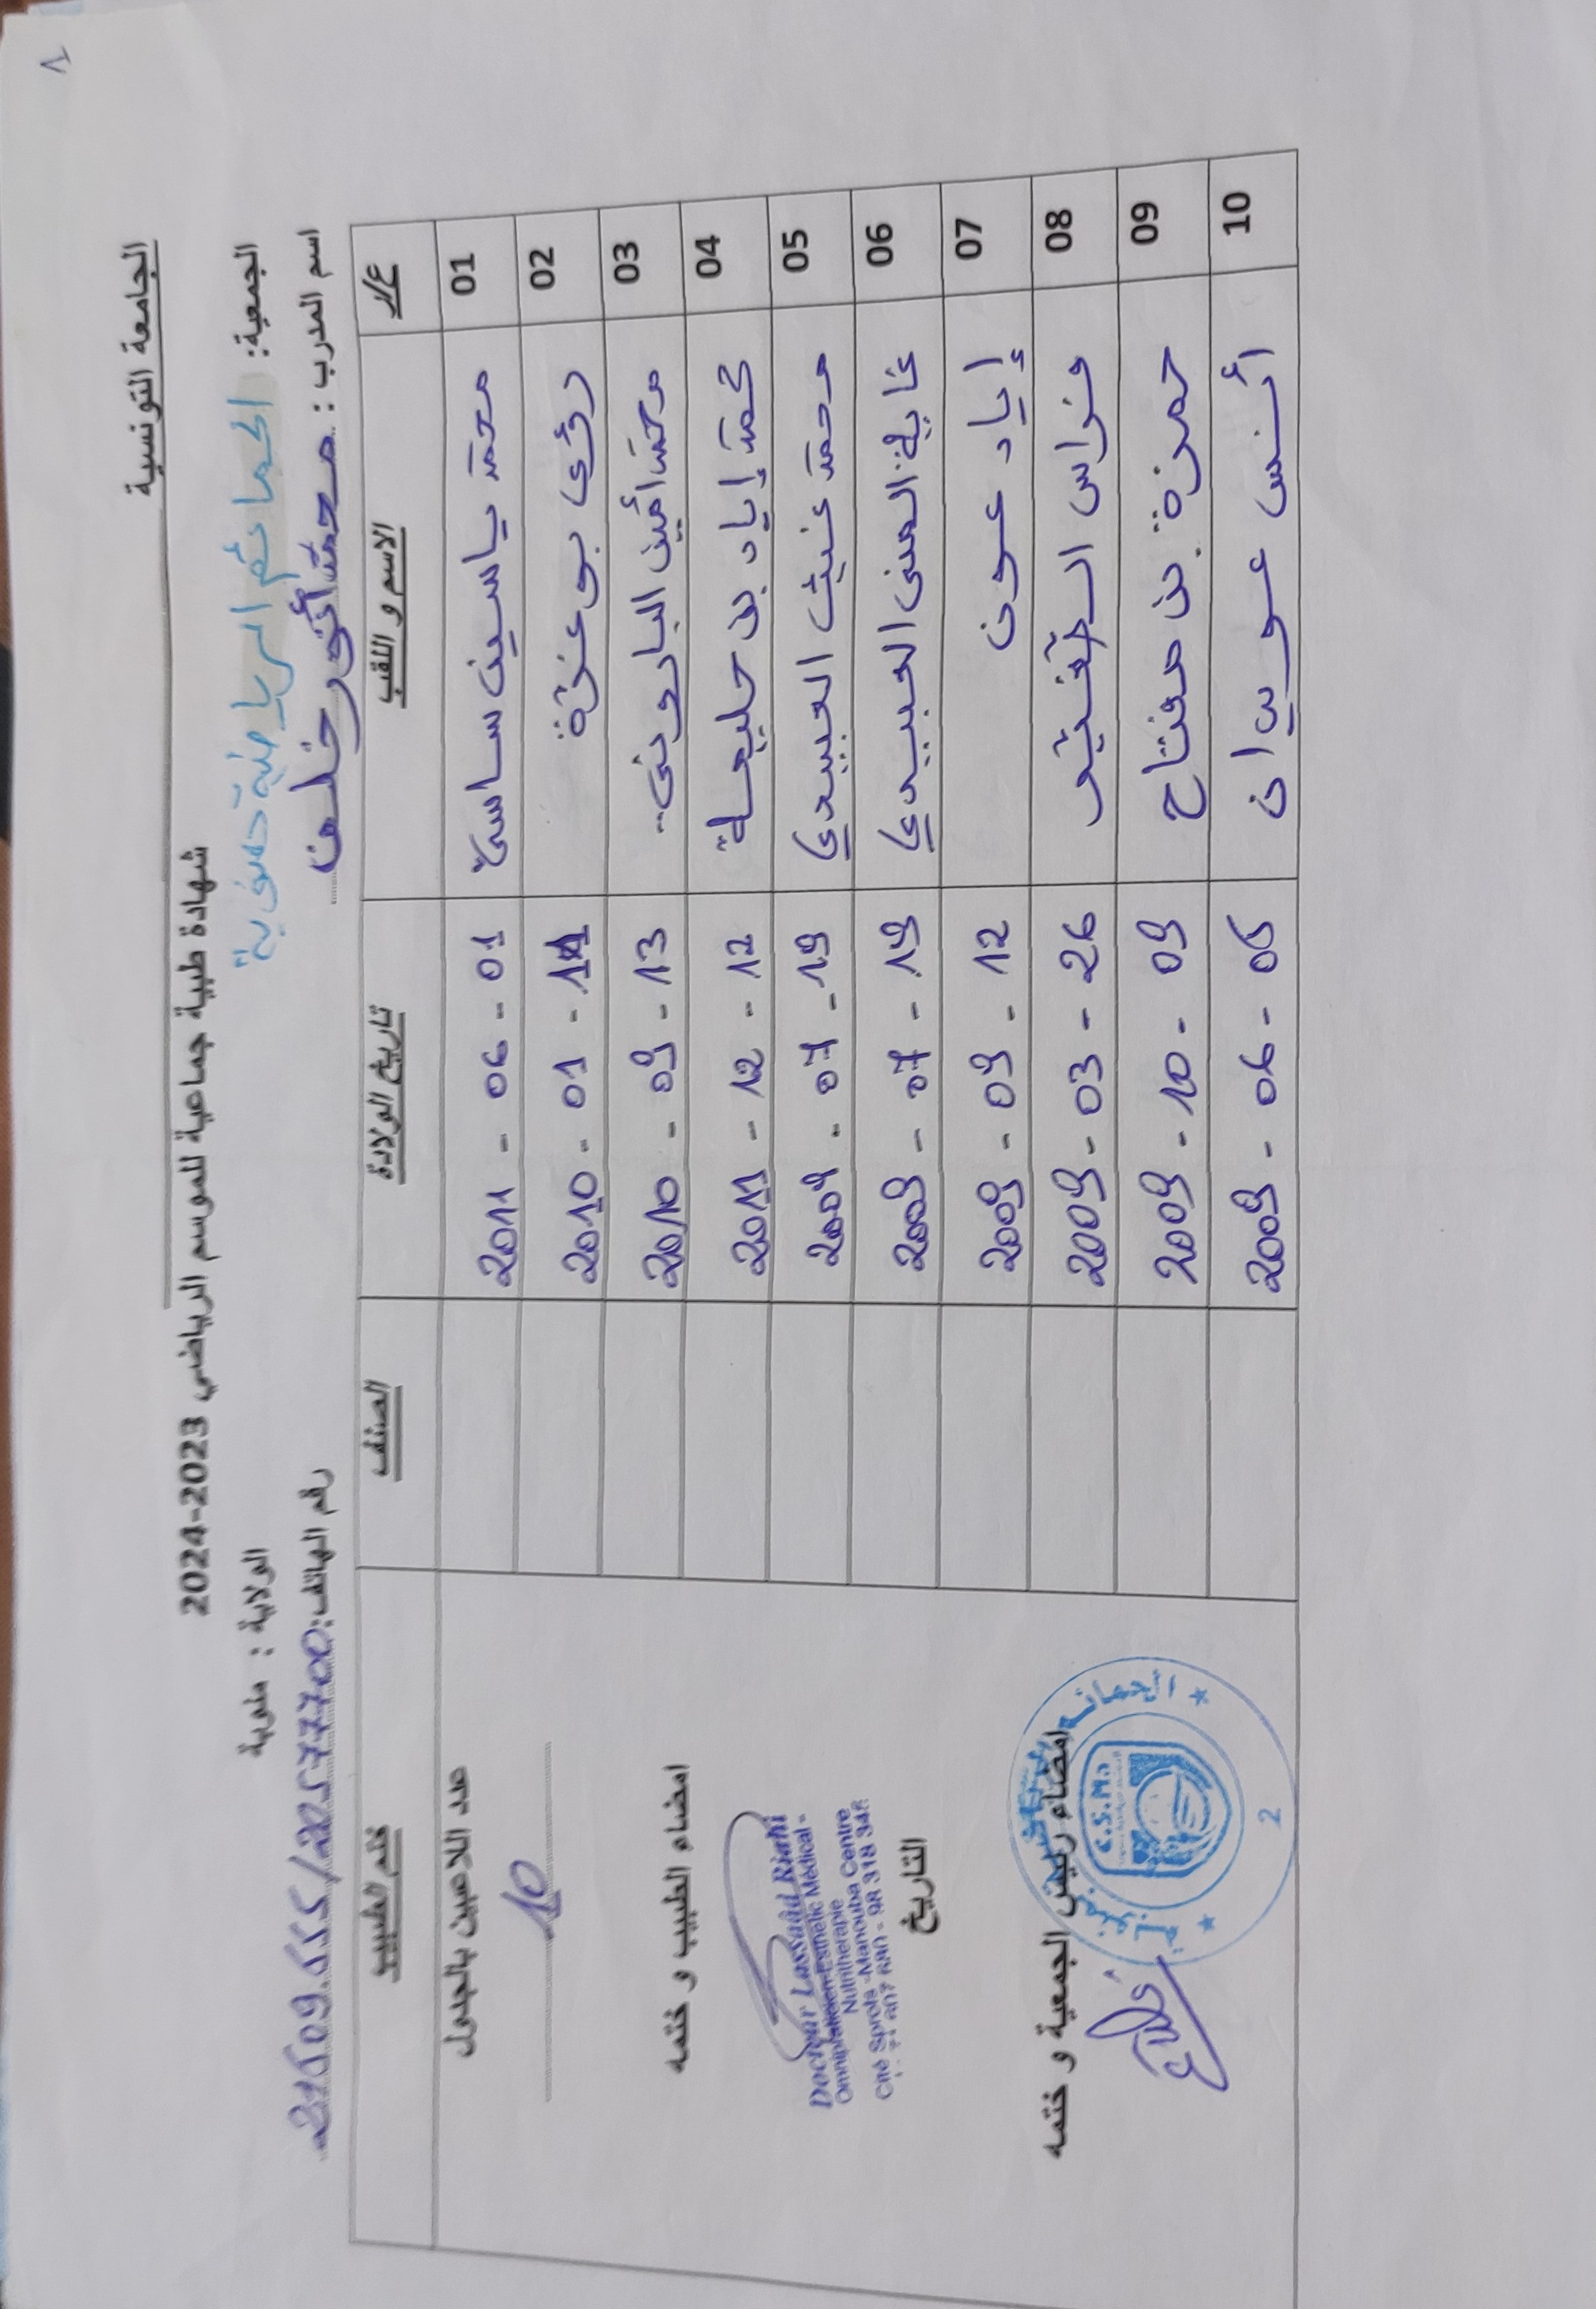 1
الجامعة التونسية
شهادة طبية جماعية للموسم الرياضي 2023-2024
الجمعية: الحمائم الرياضية بمنوبة
الولاية : منوبة
اسم المدرب : محمد أنور خلف
رقم الهاتف: 21509.555/20577700
ع/ر الاسم و اللقب تاريخ الولادة الصنف ختم الطبيب
01 محمد ياسين ساسي 2011 - 06 - 01
02 رؤى بوعزة 2010 - 01 - 11
03 محمد أمين الباروني 2010 - 09 - 13
04 محمد إياد بن حليمة 2011 - 12 - 12
05 محمد غيث العبيدي 2009 - 07 - 19
06 غاية المنى العبيدي 2009 - 07 - 19
07 إياد عون 2009 - 09 - 12
08 فراس 2009 - 03 - 26
09 حمزة بن مفتاح 2009 - 10 - 09
10 أنس عويدان 2009 - 06 - 05
عدد اللاعبين بالجدول
10
امضاء الطبيب و ختمه
Docteur Lassaad Riahi
Omnipraticien-Esthétic Médical -
Nutritherapie
Cité Sprols -Manouba Centre
98 318 348
التاريخ
امضاء رئيس الجمعية و ختمه
الحمائم
C.S.M.
2